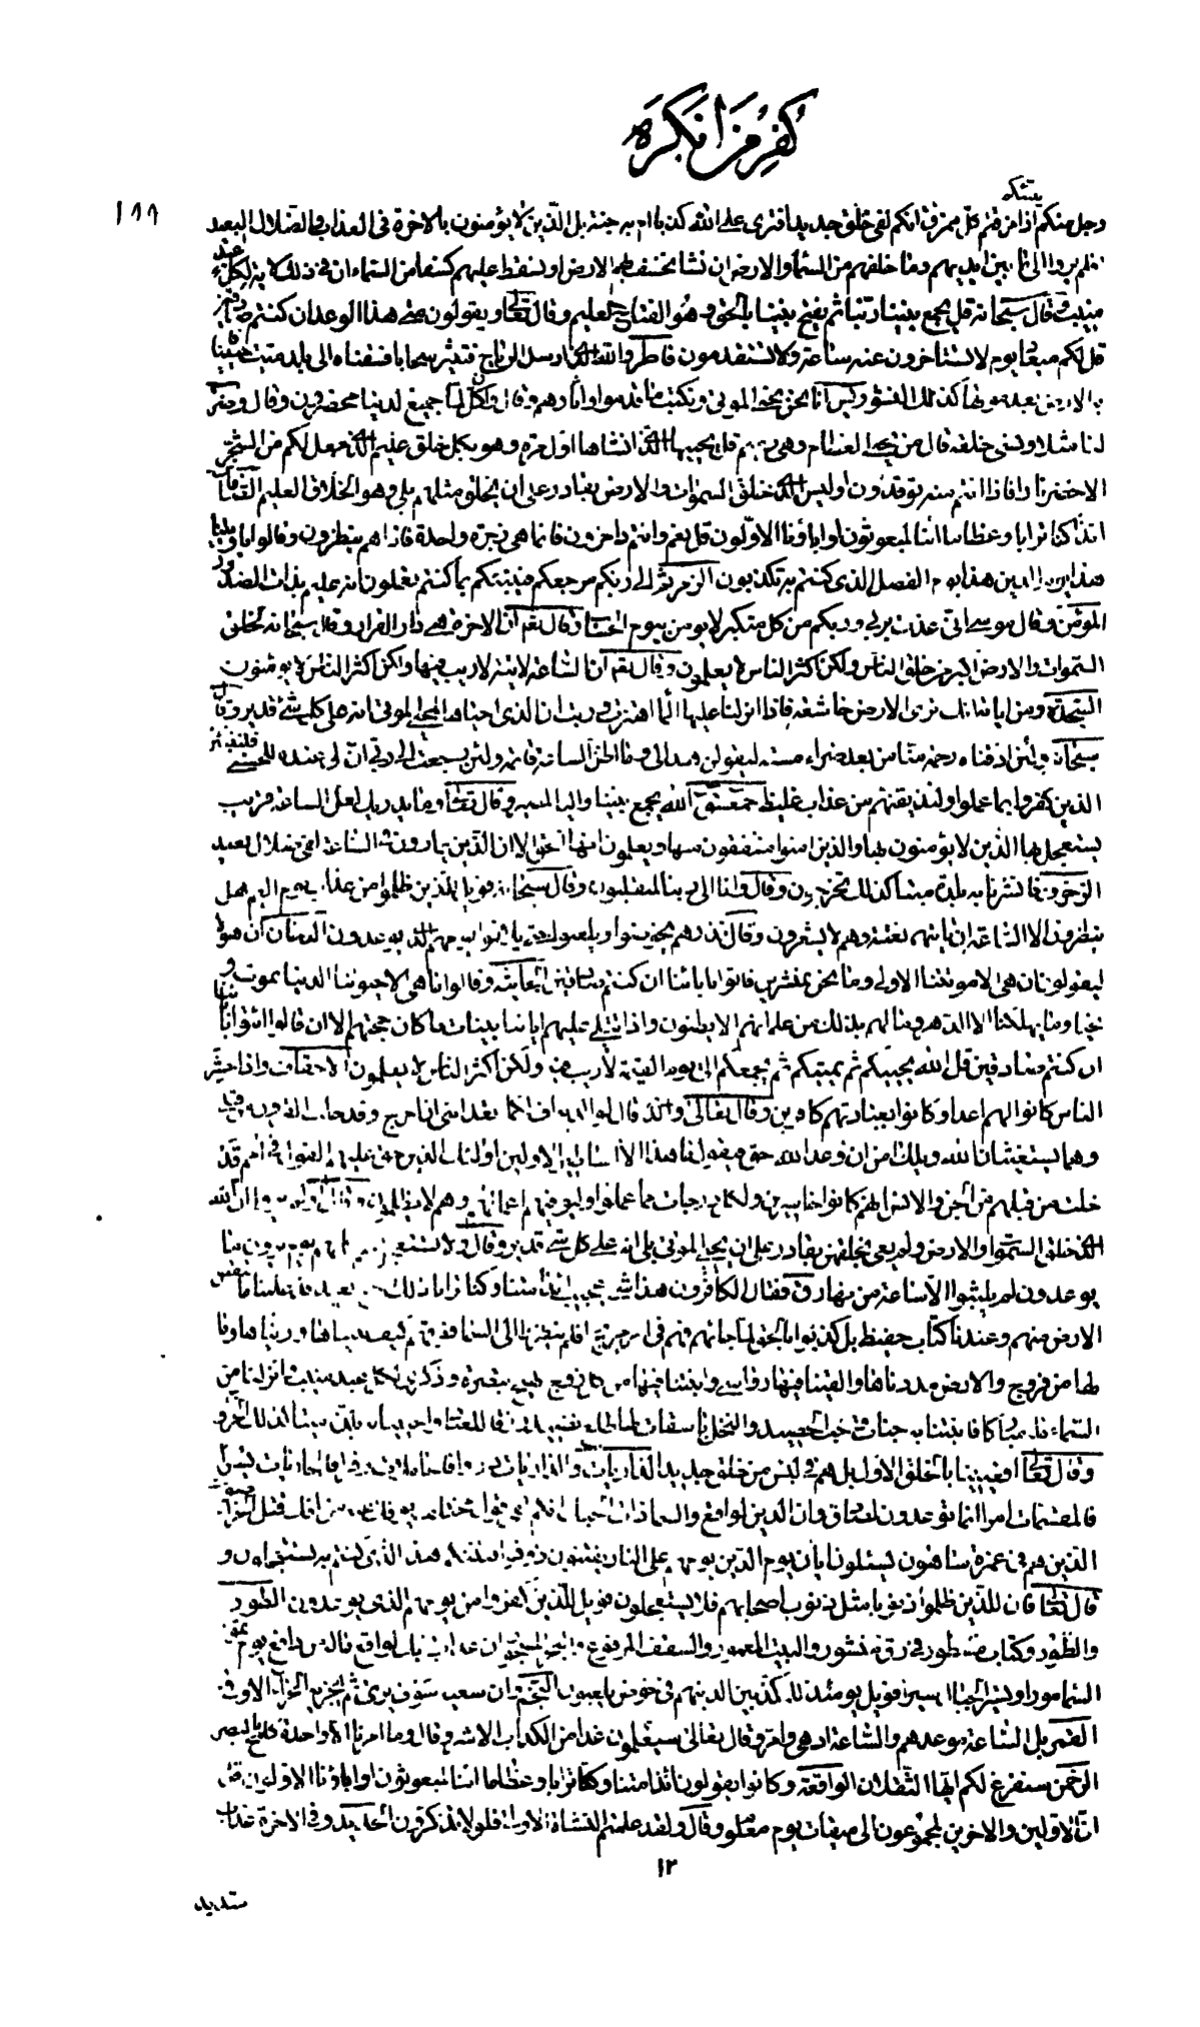 كفر من انكره
١٨٩
ينبئكم
رجل منكم اذا مزقتم كل ممزق انكم لفى خلق جديد افترى على الله كذبا ام به جنة بل الذين لا يؤمنون بالاخرة فى العذاب والضلال البعيد
افلم يروا الى ما بين ايديهم وما خلفهم من السماء والارض ان نشا نخسف بهم الارض او نسقط عليهم كسفا من السماء ان فى ذلك لاية لكل عبد
منيب وقال سبحانه قل يجمع بيننا ربنا ثم يفتح بيننا بالحق وهو الفتاح العليم وقال تعالى ويقولون متى هذا الوعد ان كنتم صادقين
قل لكم ميعاد يوم لا تستاخرون عنه ساعة ولا تستقدمون فاطر والله الذى ارسل الرياح فتثير سحابا فسقناه الى بلد ميت فاحيينا
به الارض بعد موتها كذلك النشور يس انا نحن نحى الموتى ونكتب ما قدموا واثارهم وقال وان كل لما جميع لدينا محضرون وقال وضرب
لنا مثلا ونسى خلقه قال من يحيى العظام وهى رميم قل يحييها الذى انشاها اول مرة وهو بكل خلق عليم الذى جعل لكم من الشجر
الاخضر نارا فاذا انتم منه توقدون اوليس الذى خلق السموات والارض بقادر على ان يخلق مثلهم بلى وهو الخلاق العليم الصافات
ائذا كنا ترابا وعظاما ائنا لمبعوثون اواباؤنا الاولون قل نعم وانتم داخرون فانما هى زجرة واحدة فاذا هم ينظرون وقالوا يا ويلنا
هذا يوم الدين هذا يوم الفصل الذى كنتم به تكذبون الزمر ثم الى ربكم مرجعكم فينبئكم بما كنتم تعملون انه عليم بذات الصدور
المؤمن وقال موسى انى عذت بربى وربكم من كل متكبر لا يؤمن بيوم الحساب وقال تعم ان الاخرة هى دار القرار وقال سبحانه لخلق
السموات والارض اكبر من خلق الناس ولكن اكثر الناس لا يعلمون وقال تعم ان الساعة لاتية لا ريب فيها ولكن اكثر الناس لا يؤمنون
السجدة ومن اياته انك ترى الارض خاشعة فاذا انزلنا عليها الماء اهتزت وربت ان الذى احياها لمحيى الموتى انه على كل شئ قدير وقال
سبحانه ولئن اذقناه رحمة منا من بعد ضراء مسته ليقولن هذا لى وما اظن الساعة قائمة ولئن رجعت الى ربى ان لى عنده للحسنى فلننبئن
الذين كفروا بما عملوا ولنذيقنهم من عذاب غليظ حمعسق الله يجمع بيننا واليه المصير وقال تعالى وما يدريك لعل الساعة قريب
يستعجل بها الذين لا يؤمنون بها والذين امنوا مشفقون منها ويعلمون انها الحق الا ان الذين يمارون فى الساعة لفى ضلال بعيد
الزخرف فانشرنا به بلدة ميتا كذلك تخرجون وقال وانا الى ربنا لمنقلبون وقال سبحانه فويل للذين ظلموا من عذاب يوم اليم هل
ينظرون الا الساعة ان تاتيهم بغتة وهم لا يشعرون وقال فذرهم يخوضوا ويلعبوا حتى يلاقوا يومهم الذى يوعدون الدخان ان هؤلاء
ليقولون ان هى الا موتتنا الاولى وما نحن بمنشرين فاتوا باباءنا ان كنتم صادقين الجاثية وقالوا ما هى الا حيوتنا الدنيا نموت و
نحيا وما يهلكنا الا الدهر وما لهم بذلك من علم ان هم الا يظنون واذا تتلى عليهم اياتنا بينات ما كان حجتهم الا ان قالوا ائتوا باباءنا
ان كنتم صادقين قل الله يحييكم ثم يميتكم ثم يجمعكم الى يوم القيمة لا ريب فيه ولكن اكثر الناس لا يعلمون الاحقاف واذا حشر
الناس كانوا لهم اعداء وكانوا بعبادتهم كافرين وقال تعالى والذى قال لوالديه اف لكما اتعداننى ان اخرج وقد خلت القرون من قبلى
وهما يستغيثان الله ويلك امن ان وعد الله حق فيقول ما هذا الا اساطير الاولين اولئك الذين حق عليهم القول فى امم قد
خلت من قبلهم من الجن والانس انهم كانوا خاسرين ولكل درجات مما عملوا وليوفيهم اعمالهم وهم لا يظلمون وقال اولم يروا ان الله
الذى خلق السموات والارض ولم يعى بخلقهن بقادر على ان يحيى الموتى بلى انه على كل شئ قدير وقال ولا تستعجل لهم كانهم يوم يرون ما
يوعدون لم يلبثوا الا ساعة من نهار ق فقال الكافرون هذا شئ عجيب ائذا متنا وكنا ترابا ذلك رجع بعيد قد علمنا ما تنقص
الارض منهم وعندنا كتاب حفيظ بل كذبوا بالحق لما جائهم فهم فى امر مريج افلم ينظروا الى السماء فوقهم كيف بنيناها وزيناها وما
لها من فروج والارض مددناها والقينا فيها رواسى وانبتنا فيها من كل زوج بهيج تبصرة وذكرى لكل عبد منيب وانزلنا من
السماء ماء مباركا فانبتنا به جنات وحب الحصيد والنخل باسقات لها طلع نضيد رزقا للعباد واحيينا به بلدة ميتا كذلك الخروج
وقال تعالى افعيينا بالخلق الاول بل هم فى لبس من خلق جديد الذاريات والذاريات ذروا فالحاملات وقرا فالجاريات يسرا
فالمقسمات امرا انما توعدون لصادق وان الدين لواقع والسماء ذات الحبك انكم لفى قول مختلف يؤفك عنه من افك قتل الخراصون
الذين هم فى غمرة ساهون يسئلون ايان يوم الدين يوم هم على النار يفتنون ذوقوا فتنتكم هذا الذى كنتم به تستعجلون و
قال تعالى فان للذين ظلموا ذنوبا مثل ذنوب اصحابهم فلا يستعجلون فويل للذين كفروا من يومهم الذى يوعدون الطور
والطور وكتاب مسطور فى رق منشور والبيت المعمور والسقف المرفوع والبحر المسجور ان عذاب ربك لواقع ما له من دافع يوم تمور
السماء مورا وتسير الجبال سيرا فويل يومئذ للمكذبين الذين هم فى خوض يلعبون النجم وان سعيه سوف يرى ثم يجزيه الجزاء الاوفى
القمر بل الساعة موعدهم والساعة ادهى وامر وقال تعالى سيعلمون غدا من الكذاب الاشر وقال وما امرنا الا واحدة كلمح بالبصر
الرحمن سنفرغ لكم ايها الثقلان الواقعة وكانوا يقولون ائذا متنا وكنا ترابا وعظاما ائنا لمبعوثون اواباؤنا الاولون قل
ان الاولين والاخرين لمجموعون الى ميقات يوم معلوم وقال ولقد علمتم النشاة الاولى فلولا تذكرون الحديد وفى الاخرة عذاب
١٢
شديد